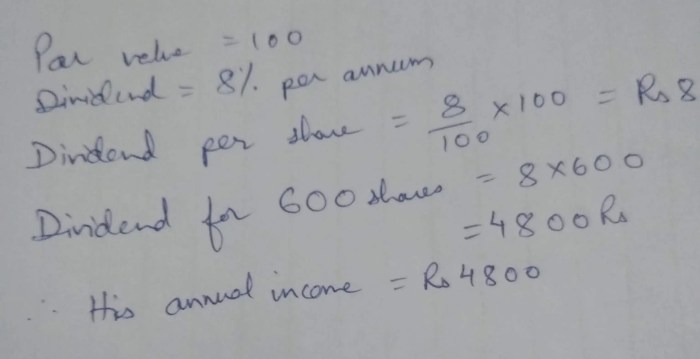 Par value = 100
Dividend = 8% per annum
Dividend per share = 8/100 × 100 = Rs 8
Dividend for 600 shares = 8 × 600
= 4800 Rs
∴ His annual income = Rs 4800